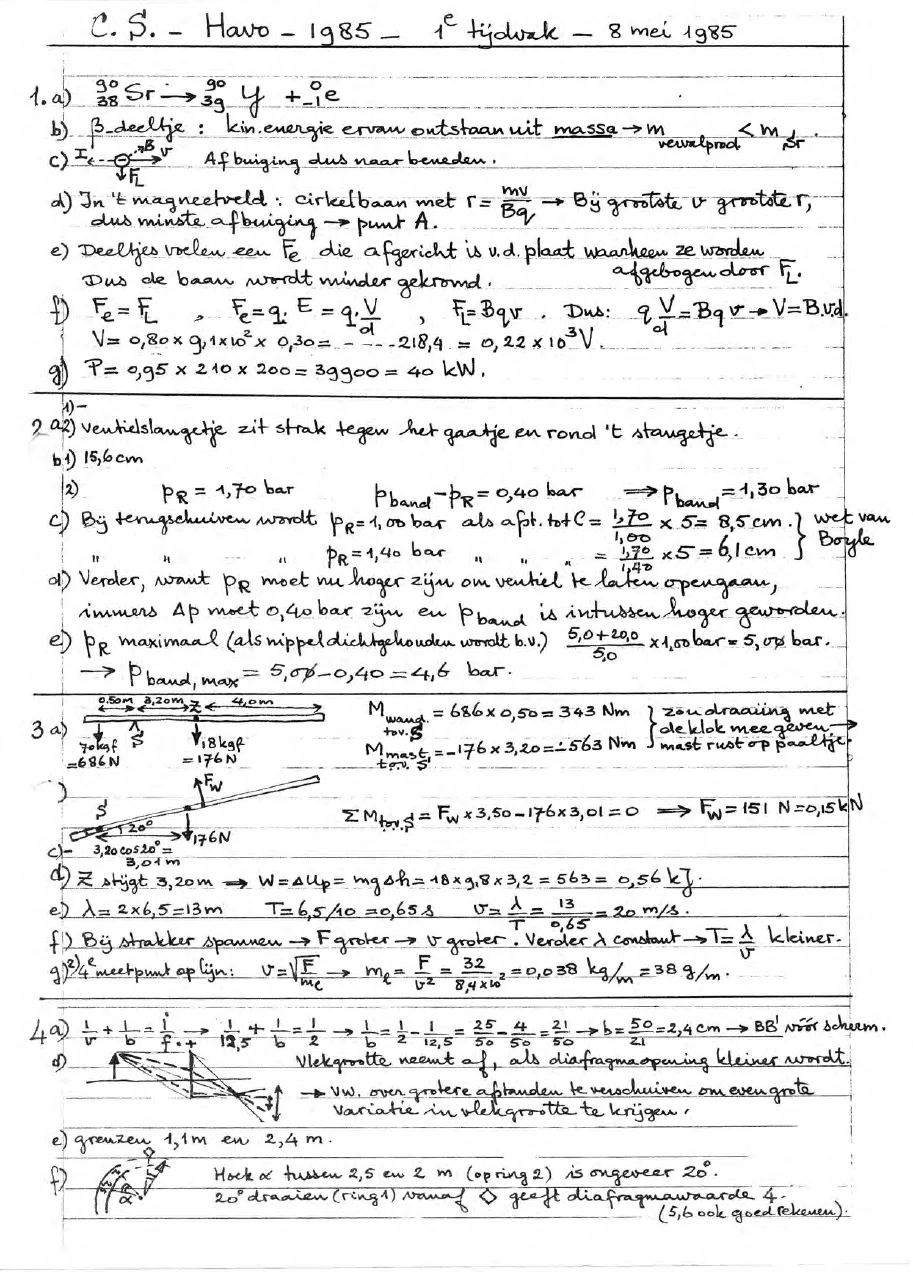 C. S. - Havo - 1985 - 1e tijdvak - 8 mei 1985
1. a) ⁹⁰₃₈Sr → ⁹⁰₃₉Y + ⁰₋₁e
b) β-deeltje : kin. energie ervan ontstaan uit massa → m vervalprod < m Sr.
c) I B v F_L Afbuiging dus naar beneden.
d) In 't magneetveld : cirkelbaan met r = mv/Bq → Bij grootste v grootste r,
dus minste afbuiging → punt A.
e) Deeltjes voelen een F_e die afgericht is v.d. plaat waarheen ze worden
Dus de baan wordt minder gekromd. afgebogen door F_L.
f) F_e = F_L , F_e = q. E = q. V/d , F_L = Bqv . Dus: q V/d = Bqv → V = B.v.d.
V = 0,80 x 9,1x10² x 0,30 = - - - - 218,4 = 0,22 x 10³ V.
g) P = 0,95 x 210 x 200 = 39900 = 40 kW.
2 a 1) -
2) ventielslangetje zit strak tegen het gaatje en rond 't stangetje.
b 1) 15,6 cm
2) p_R = 1,70 bar p_band - p_R = 0,40 bar ⟹ p_band = 1,30 bar
c) Bij terugschuiven wordt p_R = 1,00 bar als afst. tot C = 1,70/1,00 x 5 = 8,5 cm. } wet van
" " " p_R = 1,40 bar " " " = 1,70/1,40 x 5 = 6,1 cm } Boyle
d) Verder, want p_R moet nu hoger zijn om ventiel te laten opengaan,
immers Δp moet 0,40 bar zijn en p_band is intussen hoger geworden.
e) p_R maximaal (als nippel dichtgehouden wordt b.v.) 5,0+20,0/5,0 x 1,00 bar = 5,00 bar.
→ p_band, max = 5,00 - 0,40 = 4,6 bar.
3 a) 0.50m 3,20m Z 4,0m
S
70 kgf = 686 N 18 kgf = 176 N
M_wand. tov. S = 686 x 0,50 = 343 Nm } zou draaiing met
de klok mee geven →
M_mast t.o.v. S = -176 x 3,20 = -563 Nm mast rust op paaltje.
) S F_W 20° 176 N
ΣM_tov.S = F_W x 3,50 - 176 x 3,01 = 0 ⟹ F_W = 151 N = 0,15 kN
3,20 cos 20° =
3,01 m
c) -
d) Z stijgt 3,20 m → W = ΔUp = mgΔh = 18 x 9,8 x 3,2 = 563 = 0,56 kJ.
e) λ = 2 x 6,5 = 13 m T = 6,5/10 = 0,65 s v = λ/T = 13/0,65 = 20 m/s.
f) Bij strakker spannen → F groter → v groter. Verder λ constant → T = λ/v kleiner.
g) 2) 4e meetpunt op lijn: v = √F/m_ℓ → m_ℓ = F/v² = 32/8,4x10² = 0,038 kg/m = 38 g/m.
4 a) 1/v + 1/b = 1/f → 1/12,5 + 1/b = 1/2 → 1/b = 1/2 - 1/12,5 = 25/50 - 4/50 = 21/50 → b = 50/21 = 2,4 cm → BB' vóór scherm.
d) Vlekgrootte neemt af, als diafragmaopening kleiner wordt.
→ vw. over grotere afstanden te verschuiven om even grote
variatie in vlekgrootte te krijgen.
e) grenzen 1,1 m en 2,4 m.
f) Hoek α tussen 2,5 en 2 m (op ring 2) is ongeveer 20°.
20° draaien (ring 1) vanaf ◇ geeft diafragmawaarde 4.
(5,6 ook goed rekenen).